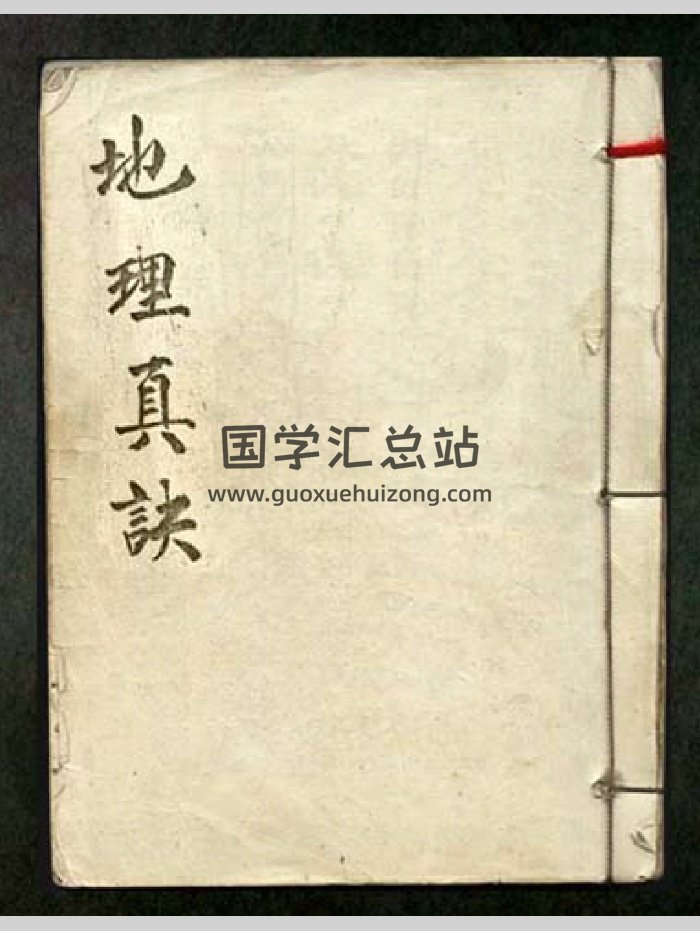 地理真訣
国学汇总站
www.guoxuehuizong.com